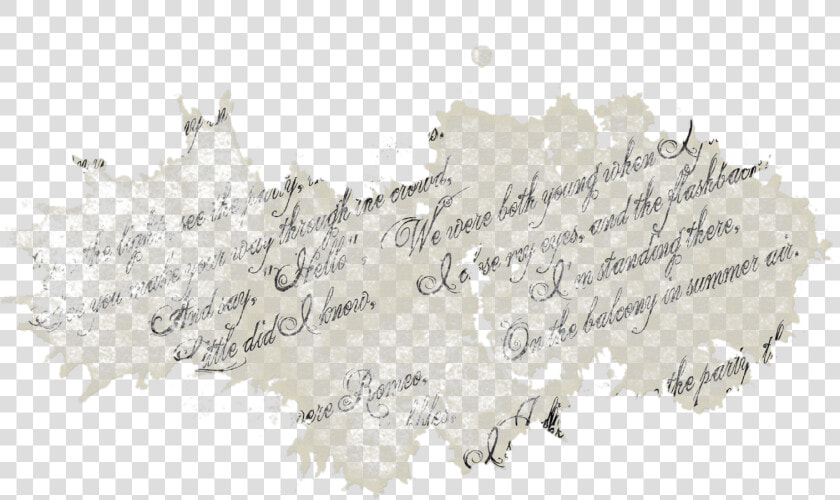 see the party,
you make your way through the crowd,
And say, "Hello",
Little did I know,
were Romeo,
We were both young when I
I close my eyes, and the flashback
I'm standing there,
On the balcony in summer air.
the party,